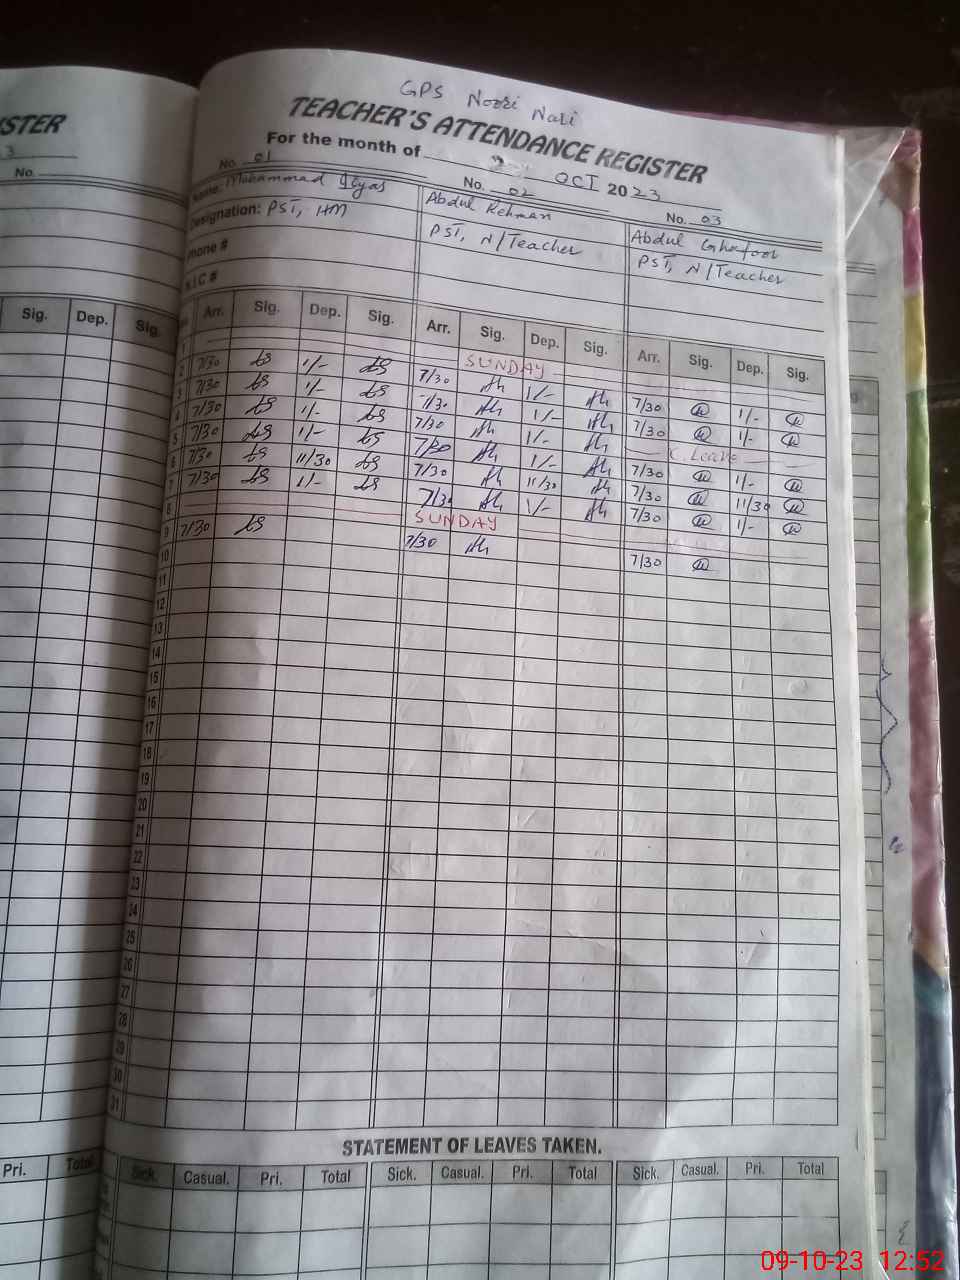 GPS Noori Nali
TEACHER'S ATTENDANCE REGISTER
For the month of OCT 2023
No. 01 No. 02 No. 03
Name: Mohammad Ilyas Abdul Rehman Abdul Ghafoor
Designation: PST, HM PST, N/Teacher PST, N/Teacher
Phone #
N.I.C #
Arr. Sig. Dep. Sig. Arr. Sig. Dep. Sig. Arr. Sig. Dep. Sig.
1 SUNDAY
2 7/30 1/- 7/30 1/- 7/30 1/-
3 7/30 1/- 7/30 1/- 7/30 1/-
4 7/30 1/- 7/30 1/- C. Leave
5 7/30 1/- 7/30 1/- 7/30 1/-
6 7/30 11/30 7/30 11/30 7/30 11/30
7 7/30 1/- 7/30 1/- 7/30 1/-
8 SUNDAY
9 7/30 7/30 7/30
10
11
12
13
14
15
16
17
18
19
20
21
22
23
24
25
26
27
28
29
30
31
STATEMENT OF LEAVES TAKEN.
Sick. Casual. Pri. Total Sick. Casual. Pri. Total Sick. Casual. Pri. Total
ISTER
3
No.
Sig. Dep. Sig.
Pri. Total
09-10-23 12:52